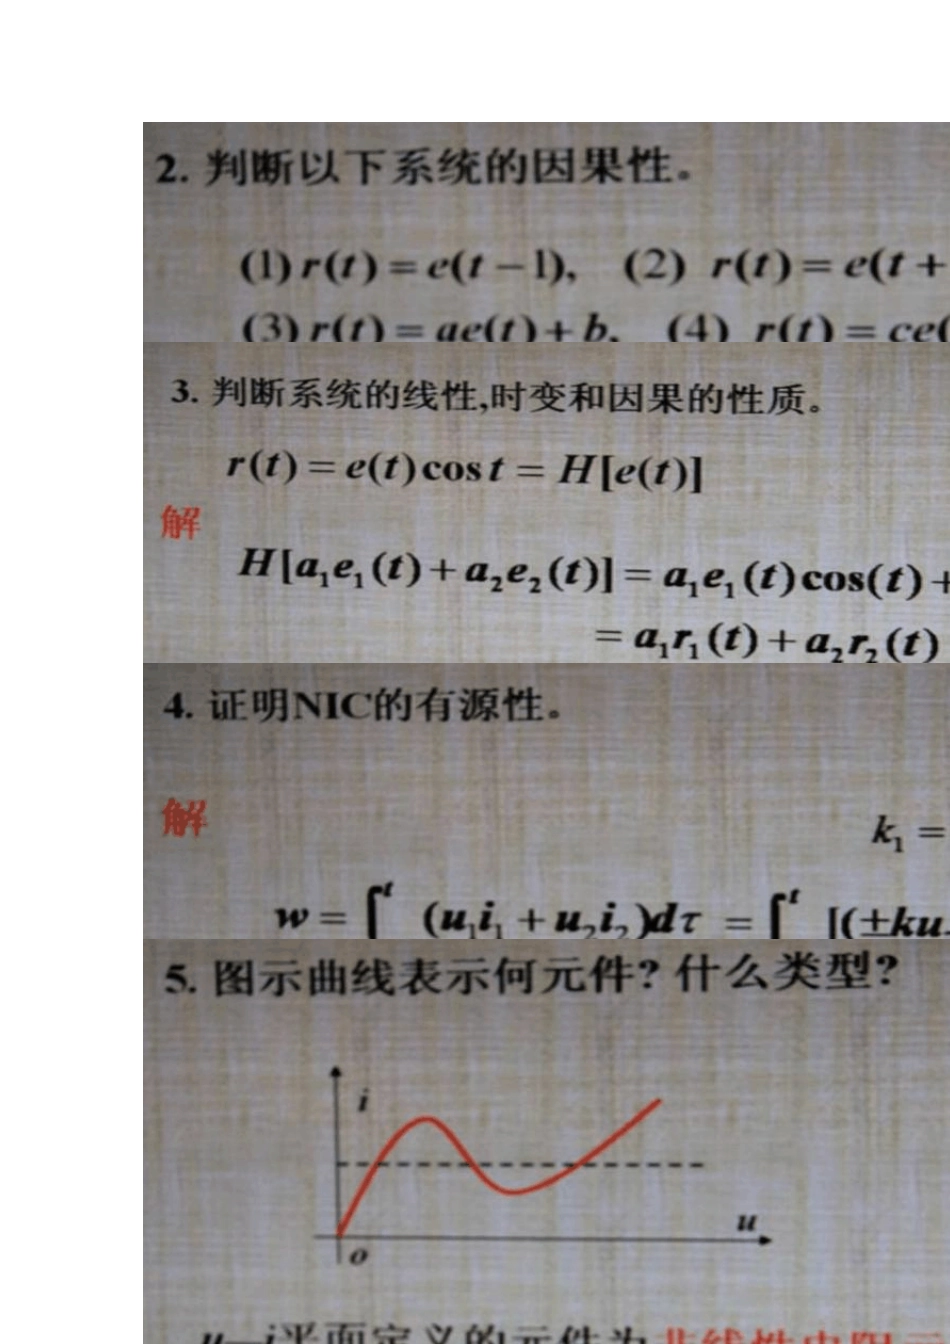 2. 判断以下系统的因果性。
(1) r(t) = e(t − 1), (2) r(t) = e(t +
(3) r(t) = ae(t) + b, (4) r(t) = ce(
3. 判断系统的线性,时变和因果的性质。
r(t) = e(t) cos t = H[e(t)]
解
H[a₁e₁(t) + a₂e₂(t)] = a₁e₁(t) cos(t) +
= a₁r₁(t) + a₂r₂(t)
4. 证明NIC的有源性。
解
k₁ =
w = ∫ᵗ (u₁i₁ + u₂i₂)dτ = ∫ᵗ [(±ku
5. 图示曲线表示何元件? 什么类型?
i
u
o
u—i平面定义的元件为非线性电阻元